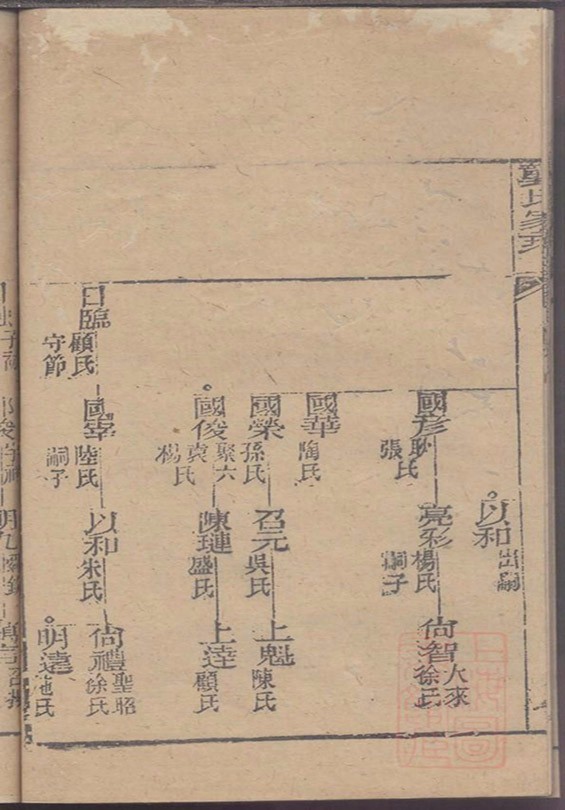 以和 出嗣
國彥 耿氏 張氏
亮彩 楊氏 嗣子
尙智 人來 徐氏
國華 陶氏
國榮 孫氏
召元 吳氏
上魁 陳氏
國俊 聚六 袁氏 楊氏
陳璉 盛氏
上達 顧氏
日臨 顧氏 守節
國宰 陸氏 嗣子
以和 朱氏
尙禮 聖昭 徐氏
明遠 氏